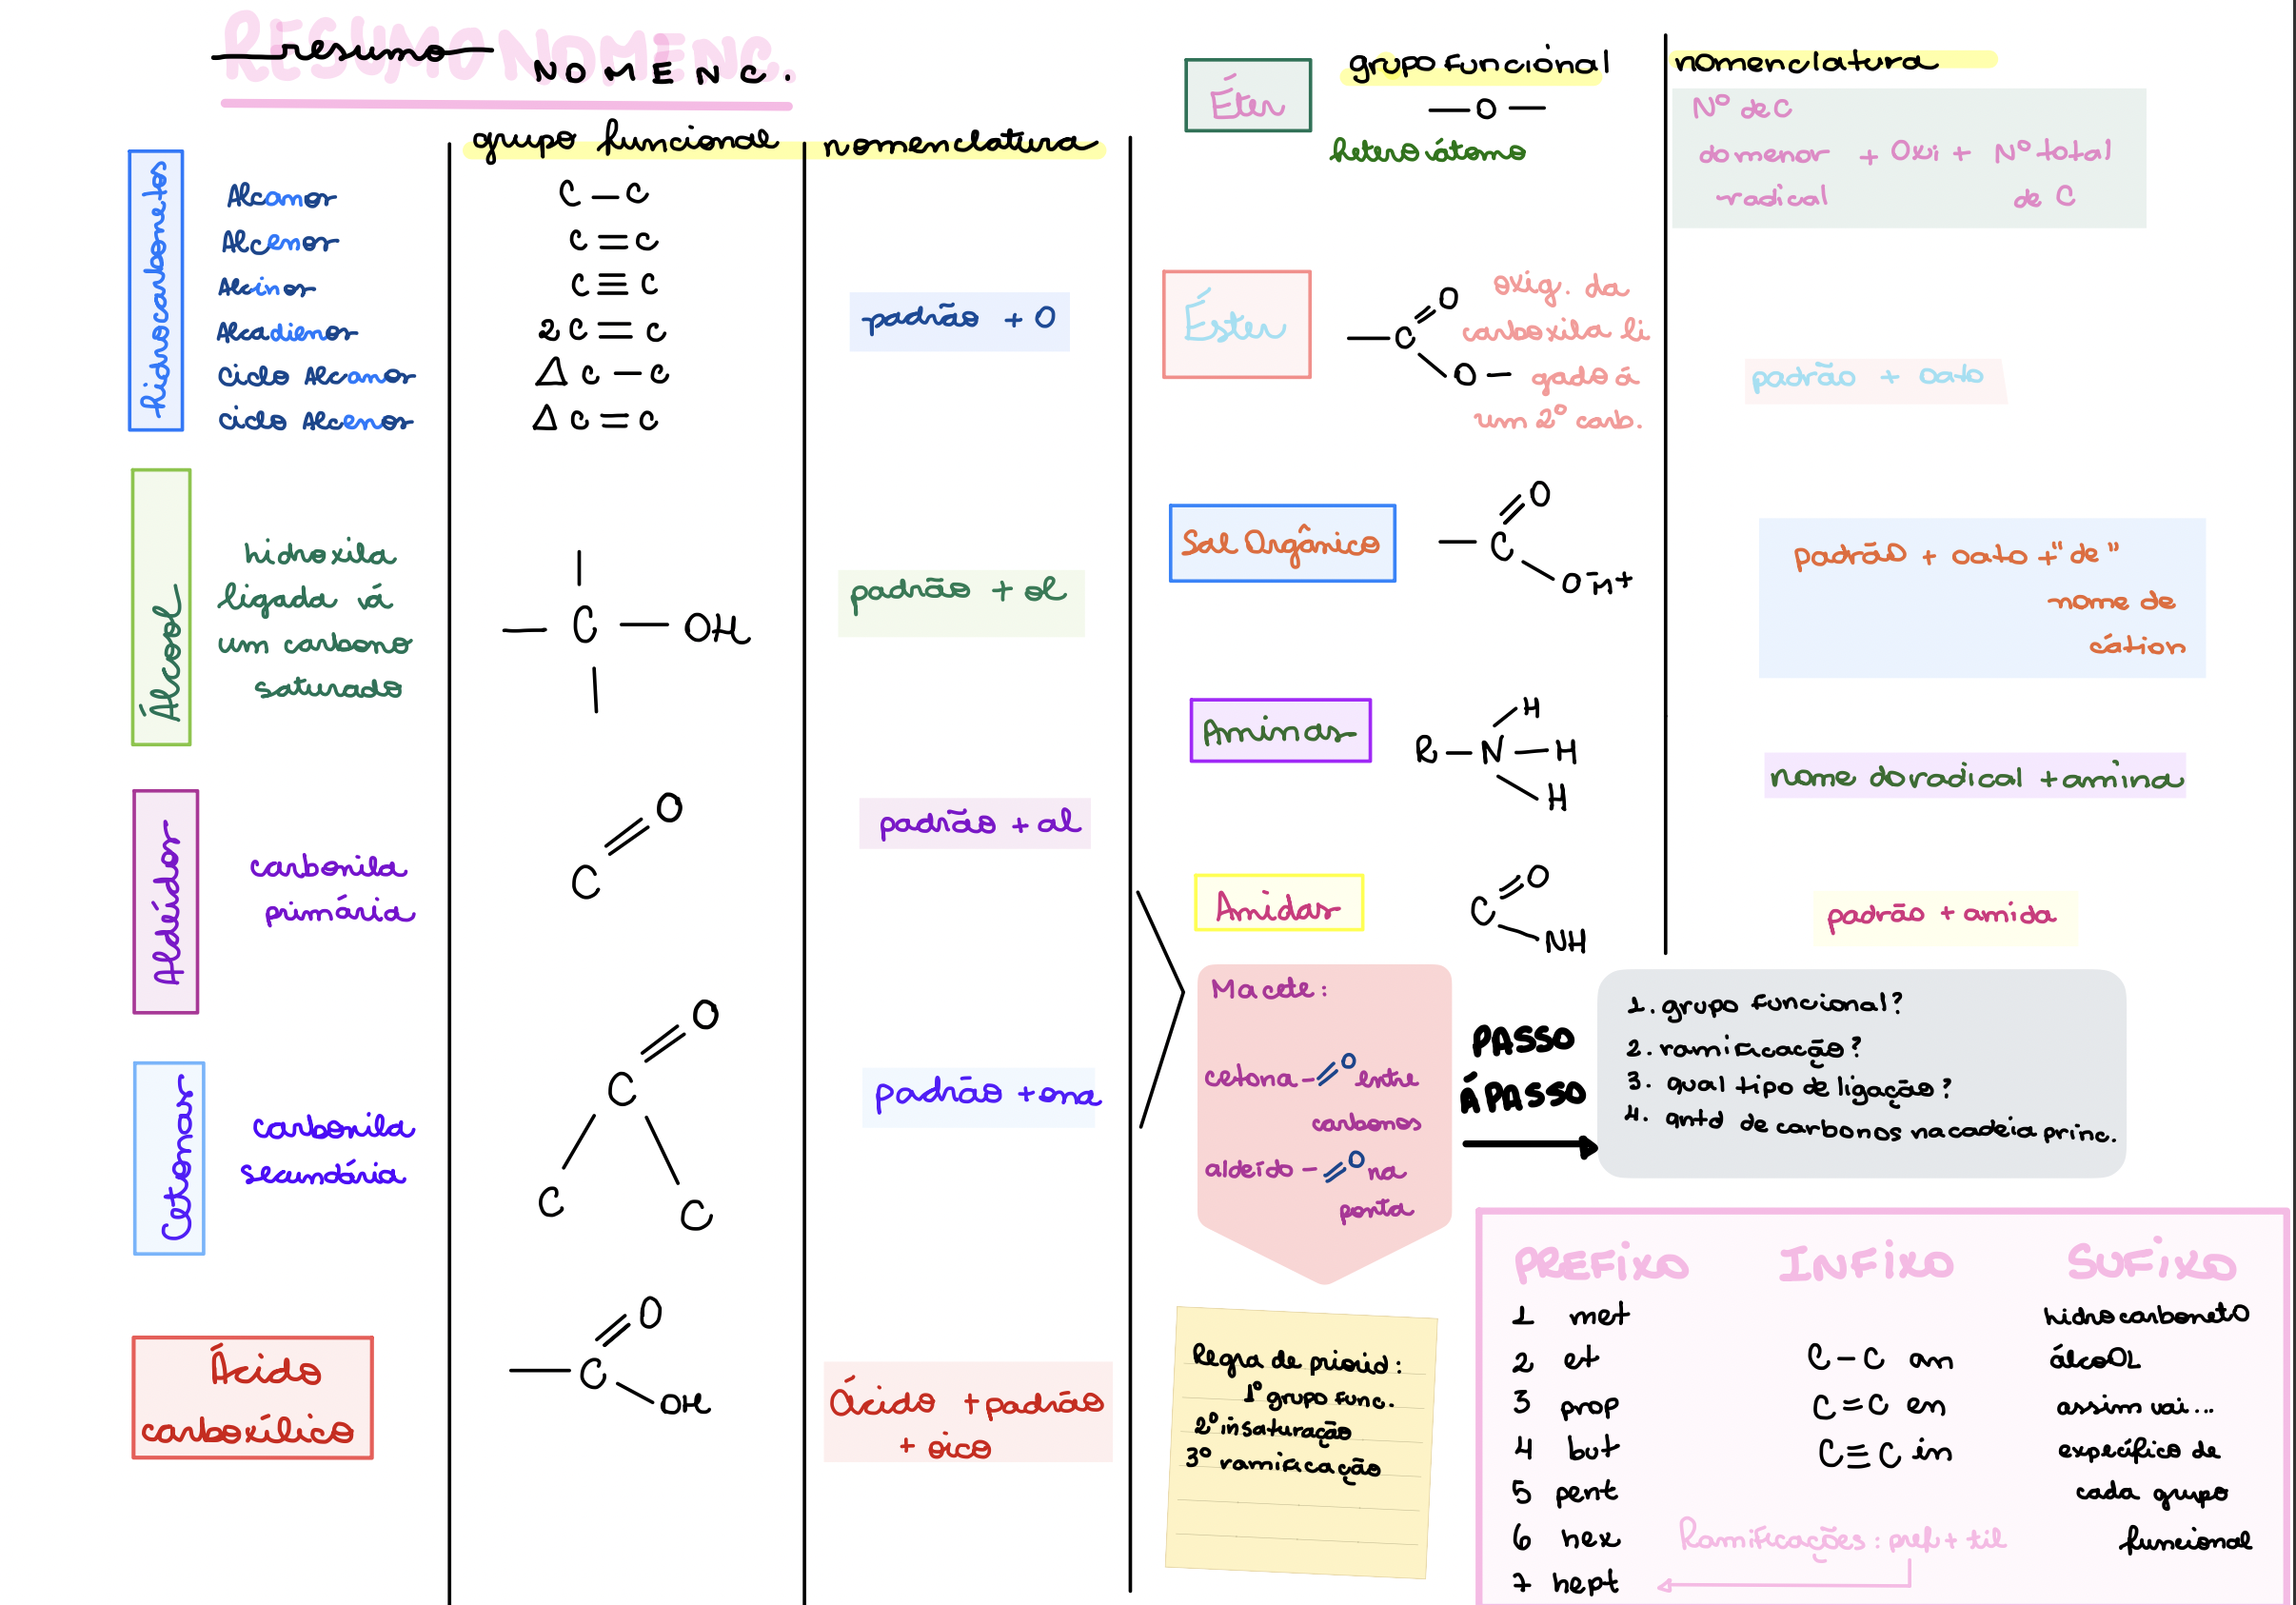 RESUMO NOMENC.
resumo
NOMENC.
grupo funcional
nomenclatura
hidrocarbonetos
Alcanos
C – C
Alcenos
C = C
Alcinos
C ≡ C
Alcadienos
2 C = C
Ciclo Alcanos
△ C – C
Ciclo Alcenos
△ C = C
padrão + O
Álcool
hidroxila
ligada á
um carbono
saturado
– C – OH
padrão + ol
Aldeídos
carbonila
primária
O
C
padrão + al
Cetonas
carbonila
secundária
O
C
C C
padrão + ona
Ácido
carboxílico
O
– C
OH
Ácido + padrão
+ oico
Éter
grupo funcional
– O –
hetero átomo
nomenclatura
Nº de C
do menor + Oxi + Nº total
radical de C
Éster
O
– C
O –
oxig. da
carboxila li
gado á
um 2º carb.
padrão + oato
Sal Orgânico
O
– C
O⁻ n⁺
padrão + oato + "de"
nome de
cátion
Aminas
H
R – N – H
H
nome do radical + amina
Amidas
O
C
NH
padrão + amida
Macete:
cetona - =O entre
carbonos
aldeído - =O na
ponta
PASSO
Á PASSO
1. grupo funcional?
2. ramificação?
3. qual tipo de ligação?
4. qntd de carbonos na cadeia princ.
Regra de priorid:
1º grupo func.
2º insaturação
3º ramificação
PREFIXO INFIXO SUFIXO
1 met hidrocarboneto
2 et C – C an álcoOL
3 prop C = C en assim vai...
4 but C ≡ C in específico de
5 pent cada grupo
6 hex Ramificações: pref + til funcional
7 hept